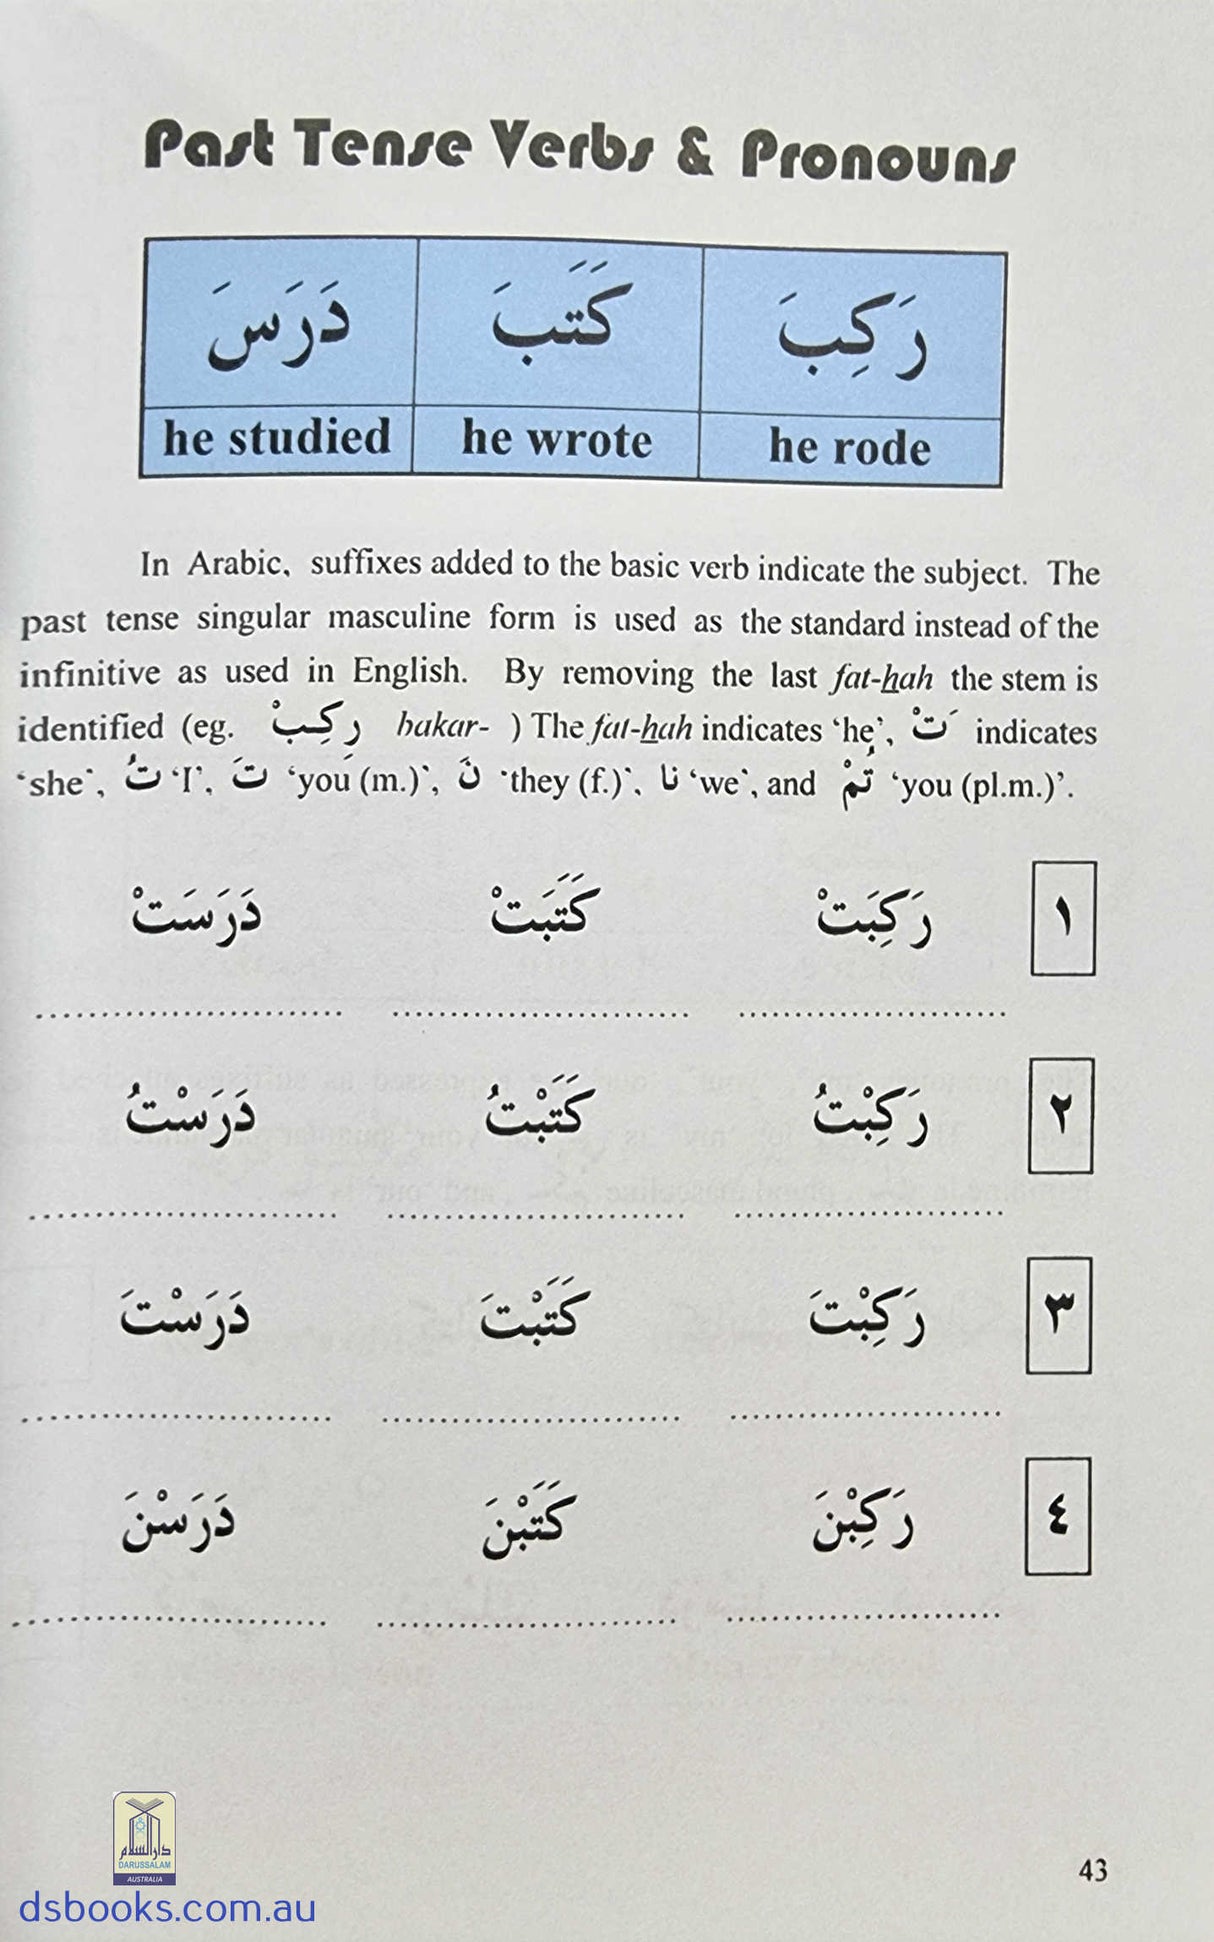 Past Tense Verbs & Pronouns
رَكِبَ كَتَبَ دَرَسَ
he studied he wrote he rode
In Arabic, suffixes added to the basic verb indicate the subject. The
past tense singular masculine form is used as the standard instead of the
infinitive as used in English. By removing the last fat-hah the stem is
identified (eg. رَكِبْ bakar- ) The fat-hah indicates ‘he’, َتْ indicates
‘she’, تُ ‘I’, تَ ‘you (m.)’, نَ ‘they (f.)’, نا ‘we’, and تُمْ ‘you (pl.m.)’.
١ رَكِبَتْ كَتَبَتْ دَرَسَتْ
٢ رَكِبْتُ كَتَبْتُ دَرَسْتُ
٣ رَكِبْتَ كَتَبْتَ دَرَسْتَ
٤ رَكِبْنَ كَتَبْنَ دَرَسْنَ
دار السلام
DARUSSALAM
AUSTRALIA
43
dsbooks.com.au